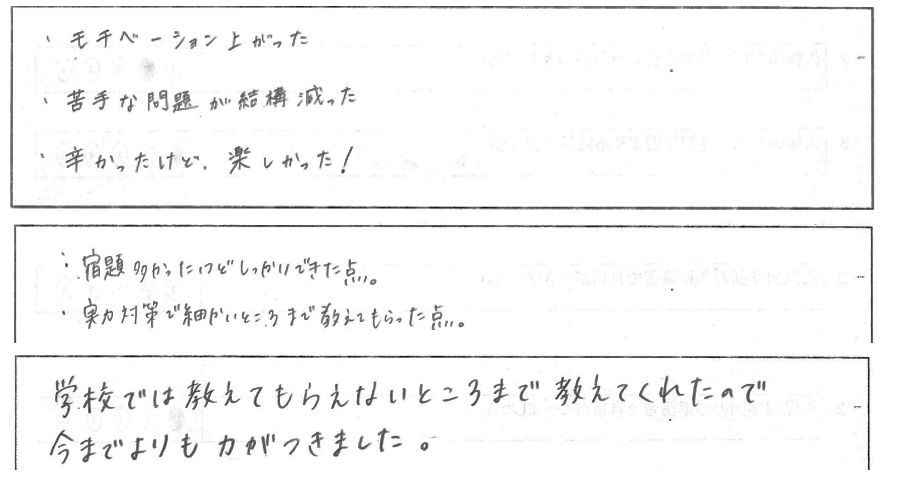 ・モチベーション上がった
・苦手な問題が結構減った
・辛かったけど、楽しかった！
・宿題多かったけどしっかりできた点。
・実力対策で細かいところまで教えてもらった点。
学校では教えてもらえないところまで教えてくれたので
今までよりも力がつきました。